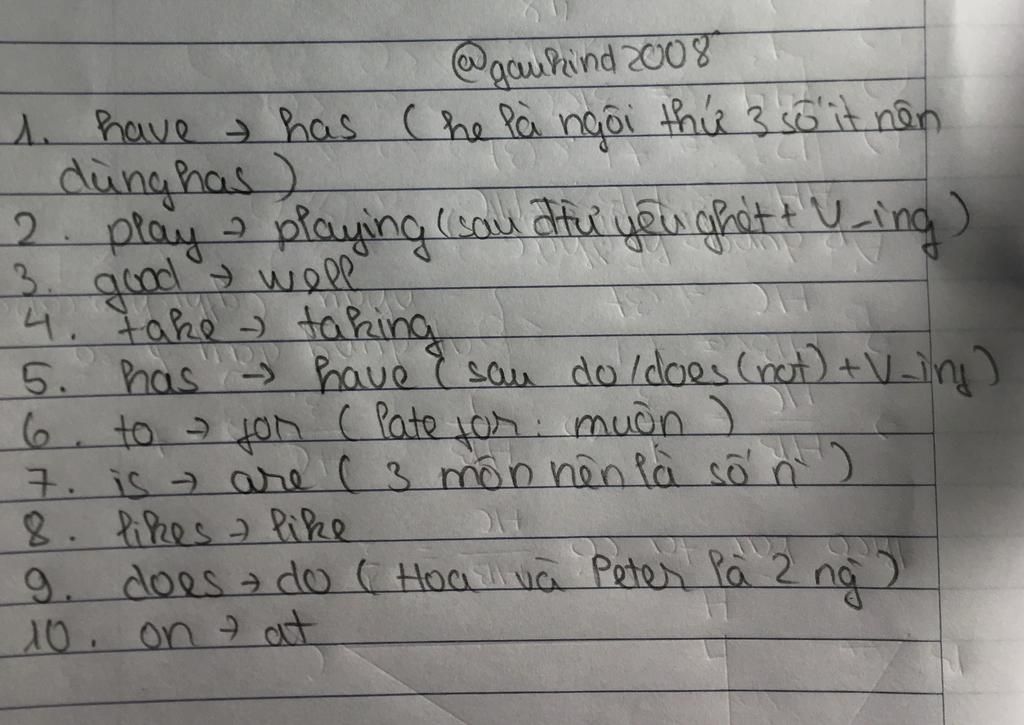 @gaukind2008
1. have → has (he là ngôi thứ 3 số ít nên
dùng has)
2. play → playing (sau đtừ yêu ghét + V_ing)
3. good → well
4. take → taking
5. has → have (sau do/does (not) + V_ing)
6. to → for (late for: muộn)
7. is → are (3 môn nên là số n`)
8. likes → like
9. does → do (Hoa và Peter là 2 ng)
10. on → at